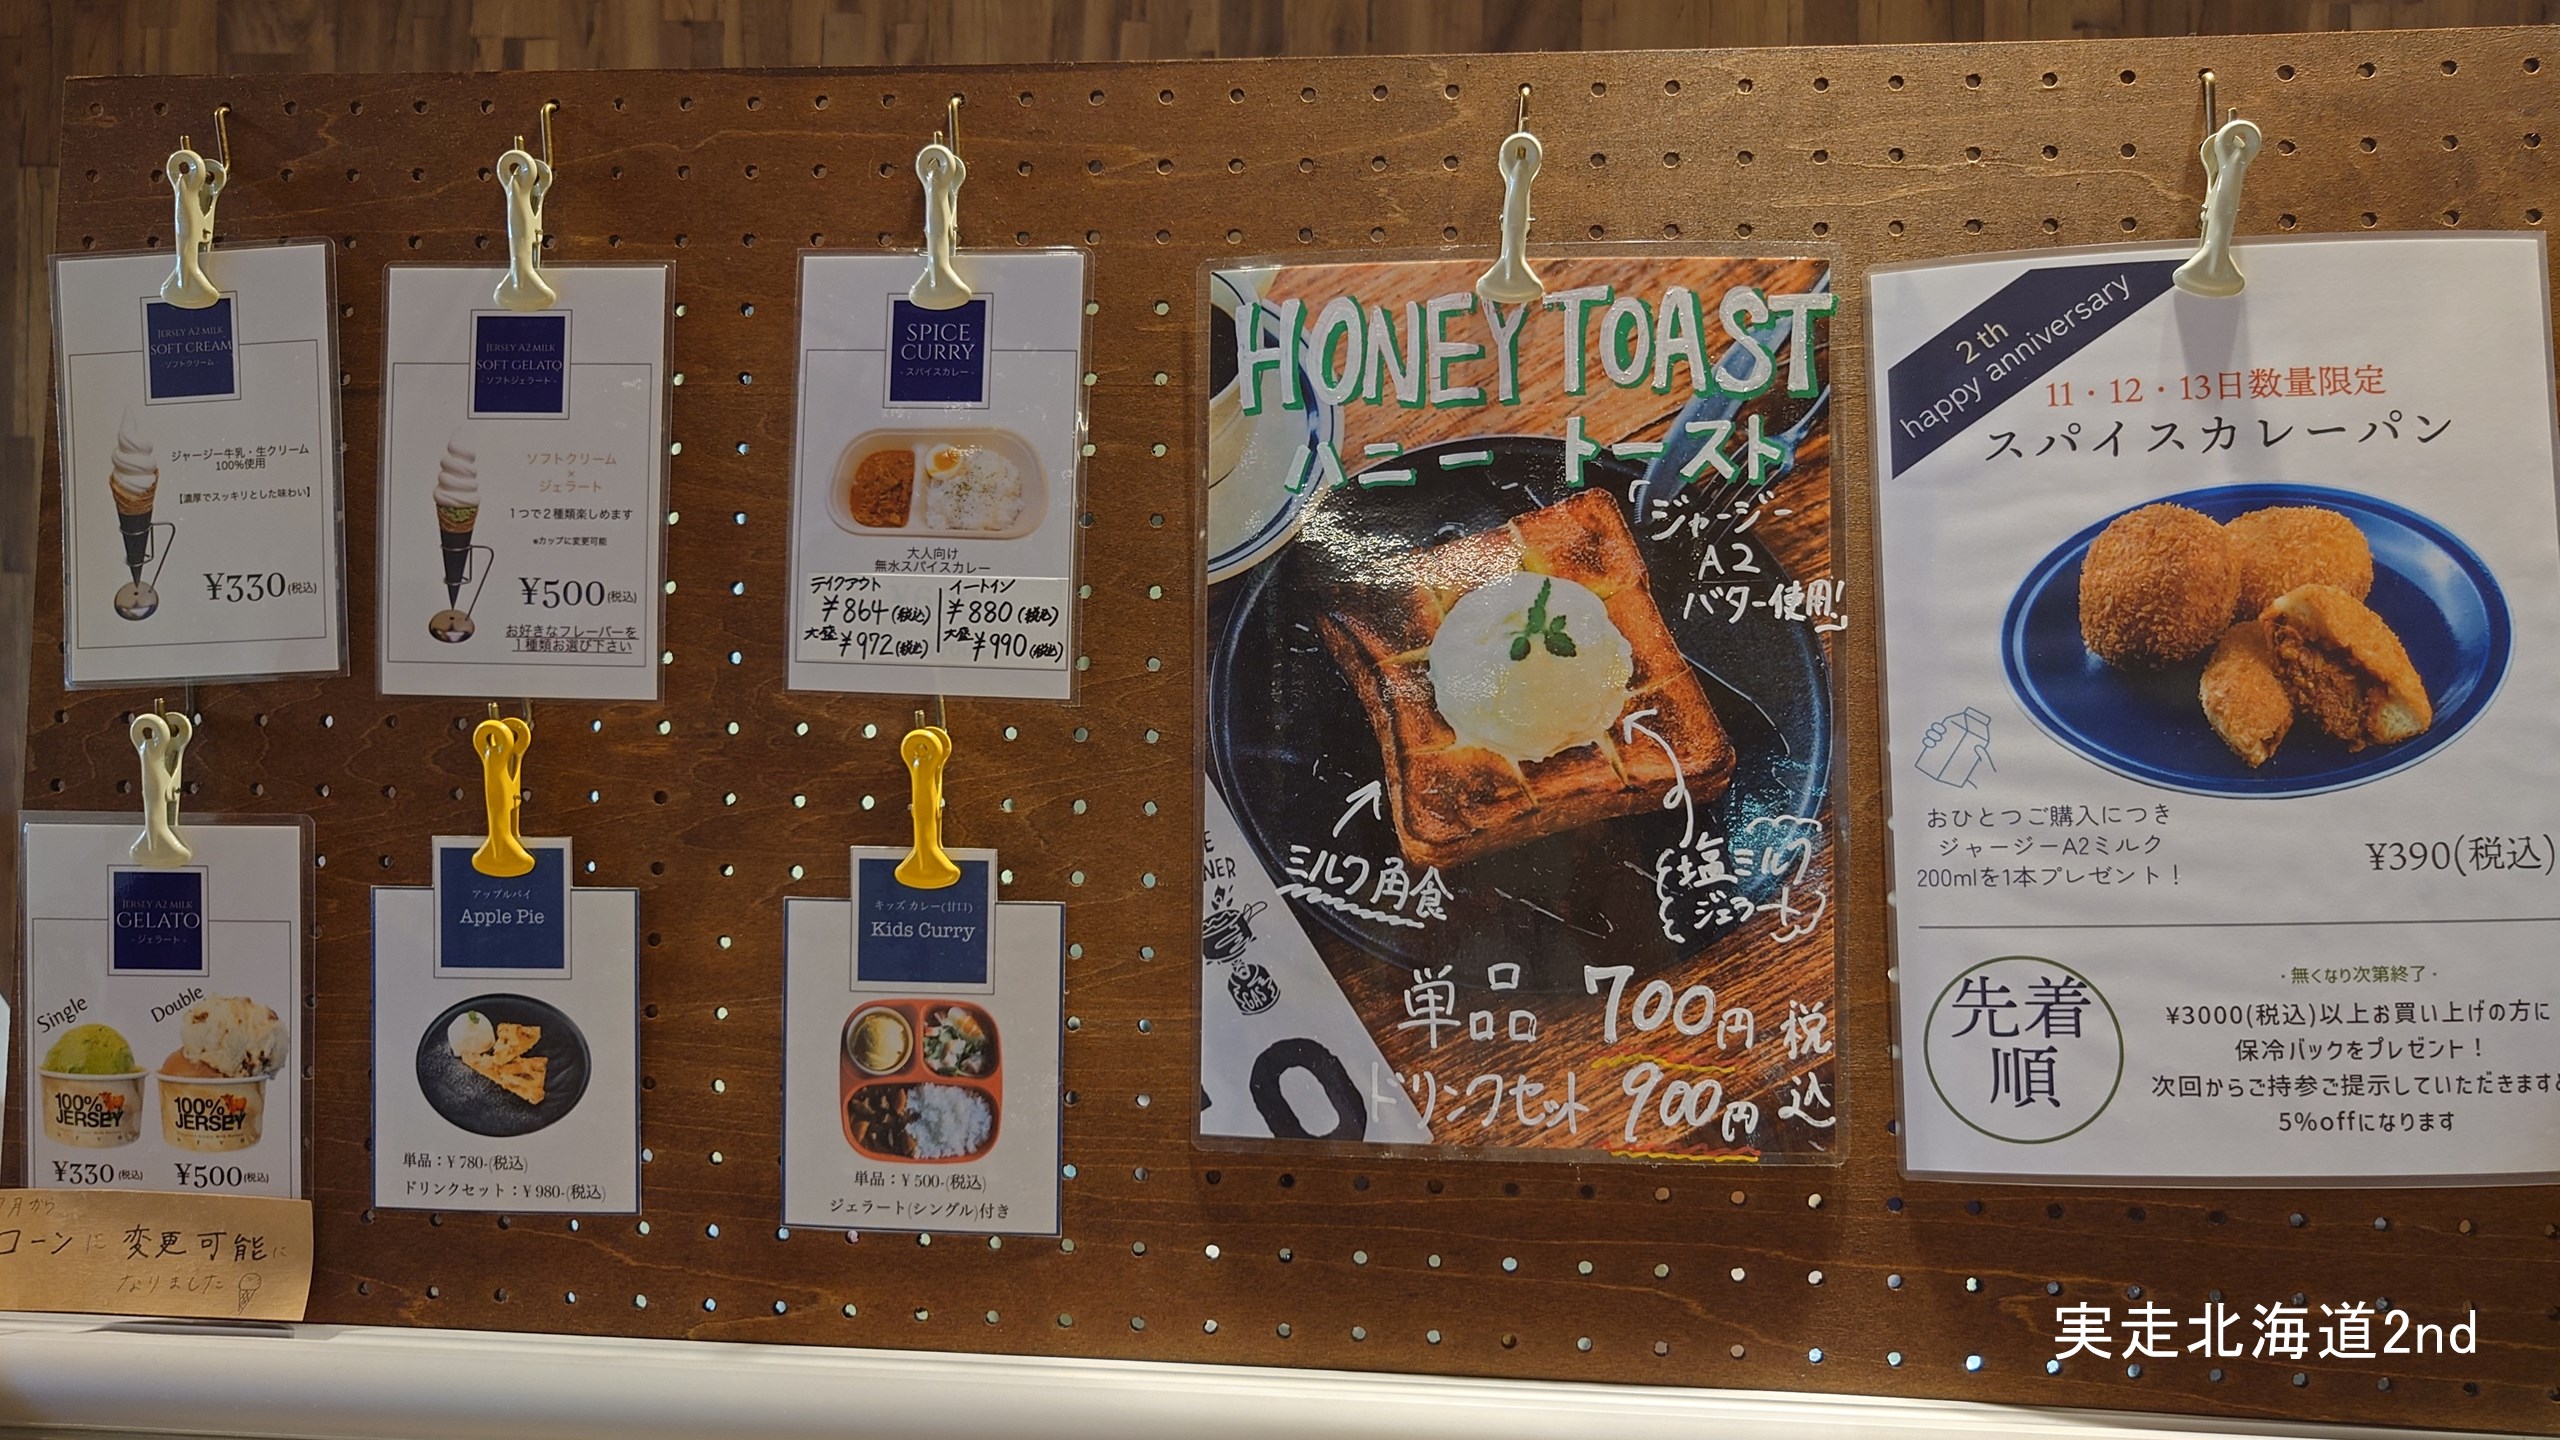 JERSEY A2 MILK
SOFT CREAM
-ソフトクリーム-
ジャージー牛乳・生クリーム
100%使用
【濃厚でスッキリとした味わい】
¥330(税込)
JERSEY A2 MILK
SOFT GELATO
-ソフトジェラート-
ソフトクリーム
×
ジェラート
1つで2種類楽しめます
※カップに変更可能
¥500(税込)
お好きなフレーバーを
1種類お選び下さい
SPICE
CURRY
-スパイスカレー-
大人向け
無水スパイスカレー
テイクアウト
¥864(税込)
大盛¥972(税込)
イートイン
¥880(税込)
大盛¥990(税込)
JERSEY A2 MILK
GELATO
-ジェラート-
Single
Double
100%
JERSEY
100%
JERSEY
¥330(税込)
¥500(税込)
7月から
コーンに変更可能に
なりました
アップルパイ
Apple Pie
単品：¥780-(税込)
ドリンクセット：¥980-(税込)
キッズカレー(甘口)
Kids Curry
単品：¥500-(税込)
ジェラート(シングル)付き
HONEY TOAST
ハニートースト
ジャージー
A2
バター使用!
ミルク角食
塩ミルク
ジェラート
単品 700円税
ドリンクセット 900円込
2th
happy anniversary
11・12・13日数量限定
スパイスカレーパン
おひとつご購入につき
ジャージーA2ミルク
200mlを1本プレゼント！
¥390(税込)
先着
順
・無くなり次第終了・
¥3000(税込)以上お買い上げの方に
保冷バックをプレゼント！
次回からご持参ご提示していただきますと
5%offになります
実走北海道2nd